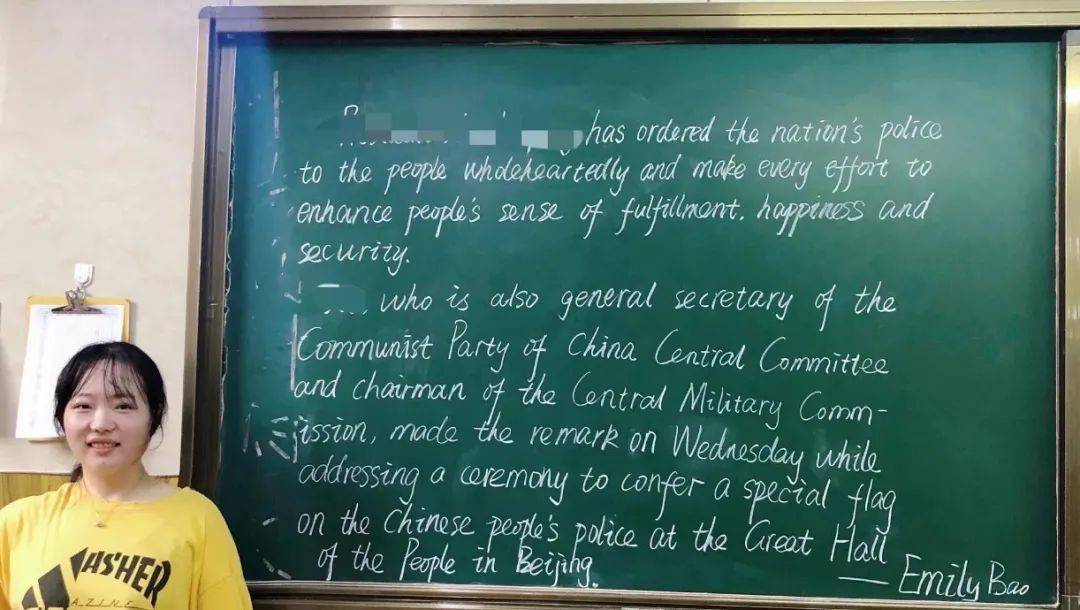 has ordered the nation's police
to the people wholeheartedly and make every effort to
enhance people's sense of fulfillment, happiness and
security.
, who is also general secretary of the
Communist Party of China Central Committee
and chairman of the Central Military Comm-
ission, made the remark on Wednesday while
addressing a ceremony to confer a special flag
on the Chinese people's police at the Great Hall
of the People in Beijing.
— Emily Bao
ASHER
AZINE